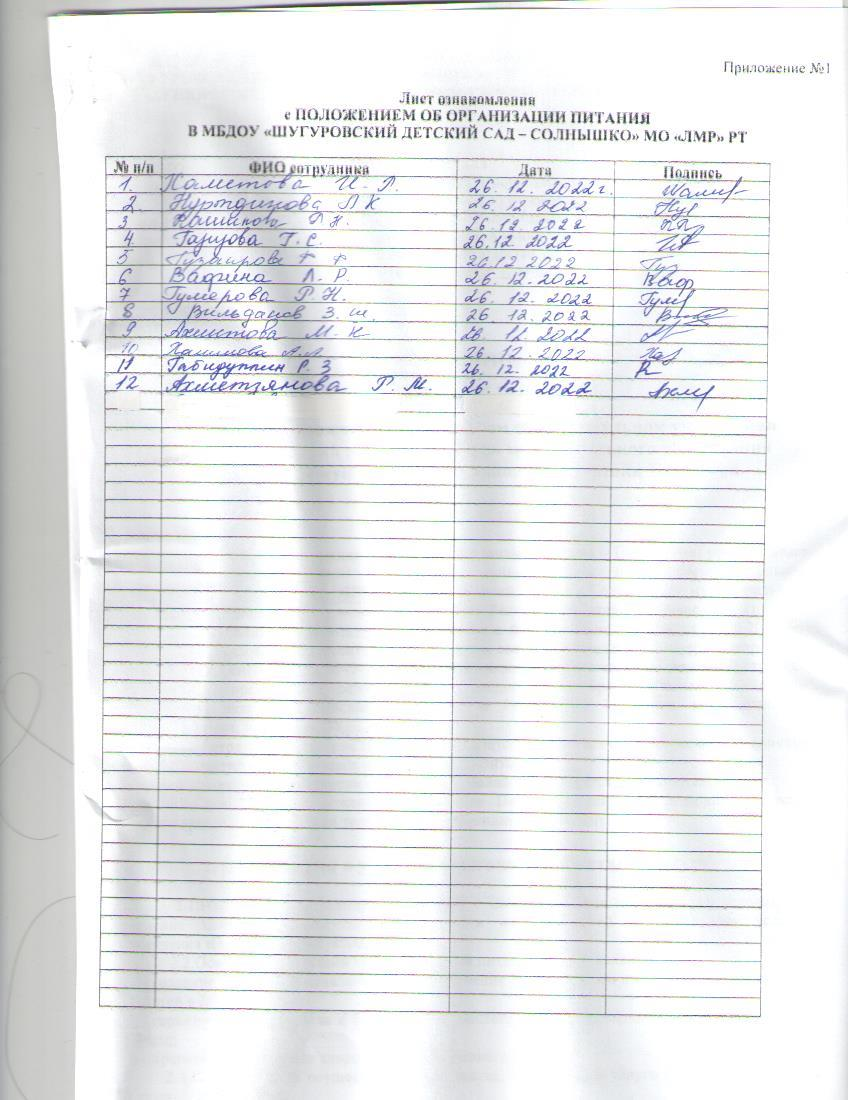 Приложение №1
Лист ознакомления
с ПОЛОЖЕНИЕМ ОБ ОРГАНИЗАЦИИ ПИТАНИЯ
В МБДОУ «ШУГУРОВСКИЙ ДЕТСКИЙ САД – СОЛНЫШКО» МО «ЛМР» РТ
№ п/п ФИО сотрудника Дата Подпись
1. 26.12.2022г.
2. Нуртдинова Л К 26.12 2022 Нур
3 26.12.2022
4. Г.С. 26.12 2022
5 26.12 2022 Гуз
6 Вафина Л. Р. 26.12.2022 Ваф
7 Гумерова Р.Н. 26.12.2022 Гум
8 Вильданов З.ш. 26.12.2022
9 Ахметова М. Н 26.12.2022
10 Халимова А.Л 26.12.2022
11 Габидуллин Р. З 26.12.2022
12 Ахметзянова Г. М. 26.12.2022 Ахм